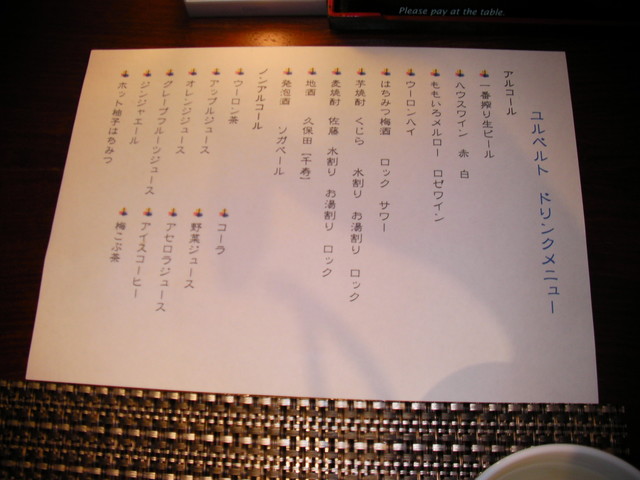 Please pay at the table.
ユルベルト ドリンクメニュー
アルコール
一番搾り生ビール
ハウスワイン 赤 白
ももいろメルロー ロゼワイン
ウーロンハイ
はちみつ梅酒 ロック サワー
芋焼酎 くじら 水割り お湯割り ロック
麦焼酎 佐藤 水割り お湯割り ロック
地酒 久保田【千寿】
発泡酒 ソガベール
ノンアルコール
ウーロン茶
アップルジュース
オレンジジュース
グレープフルーツジュース
ジンジャエール
ホット柚子はちみつ
コーラ
野菜ジュース
アセロラジュース
アイスコーヒー
梅こぶ茶